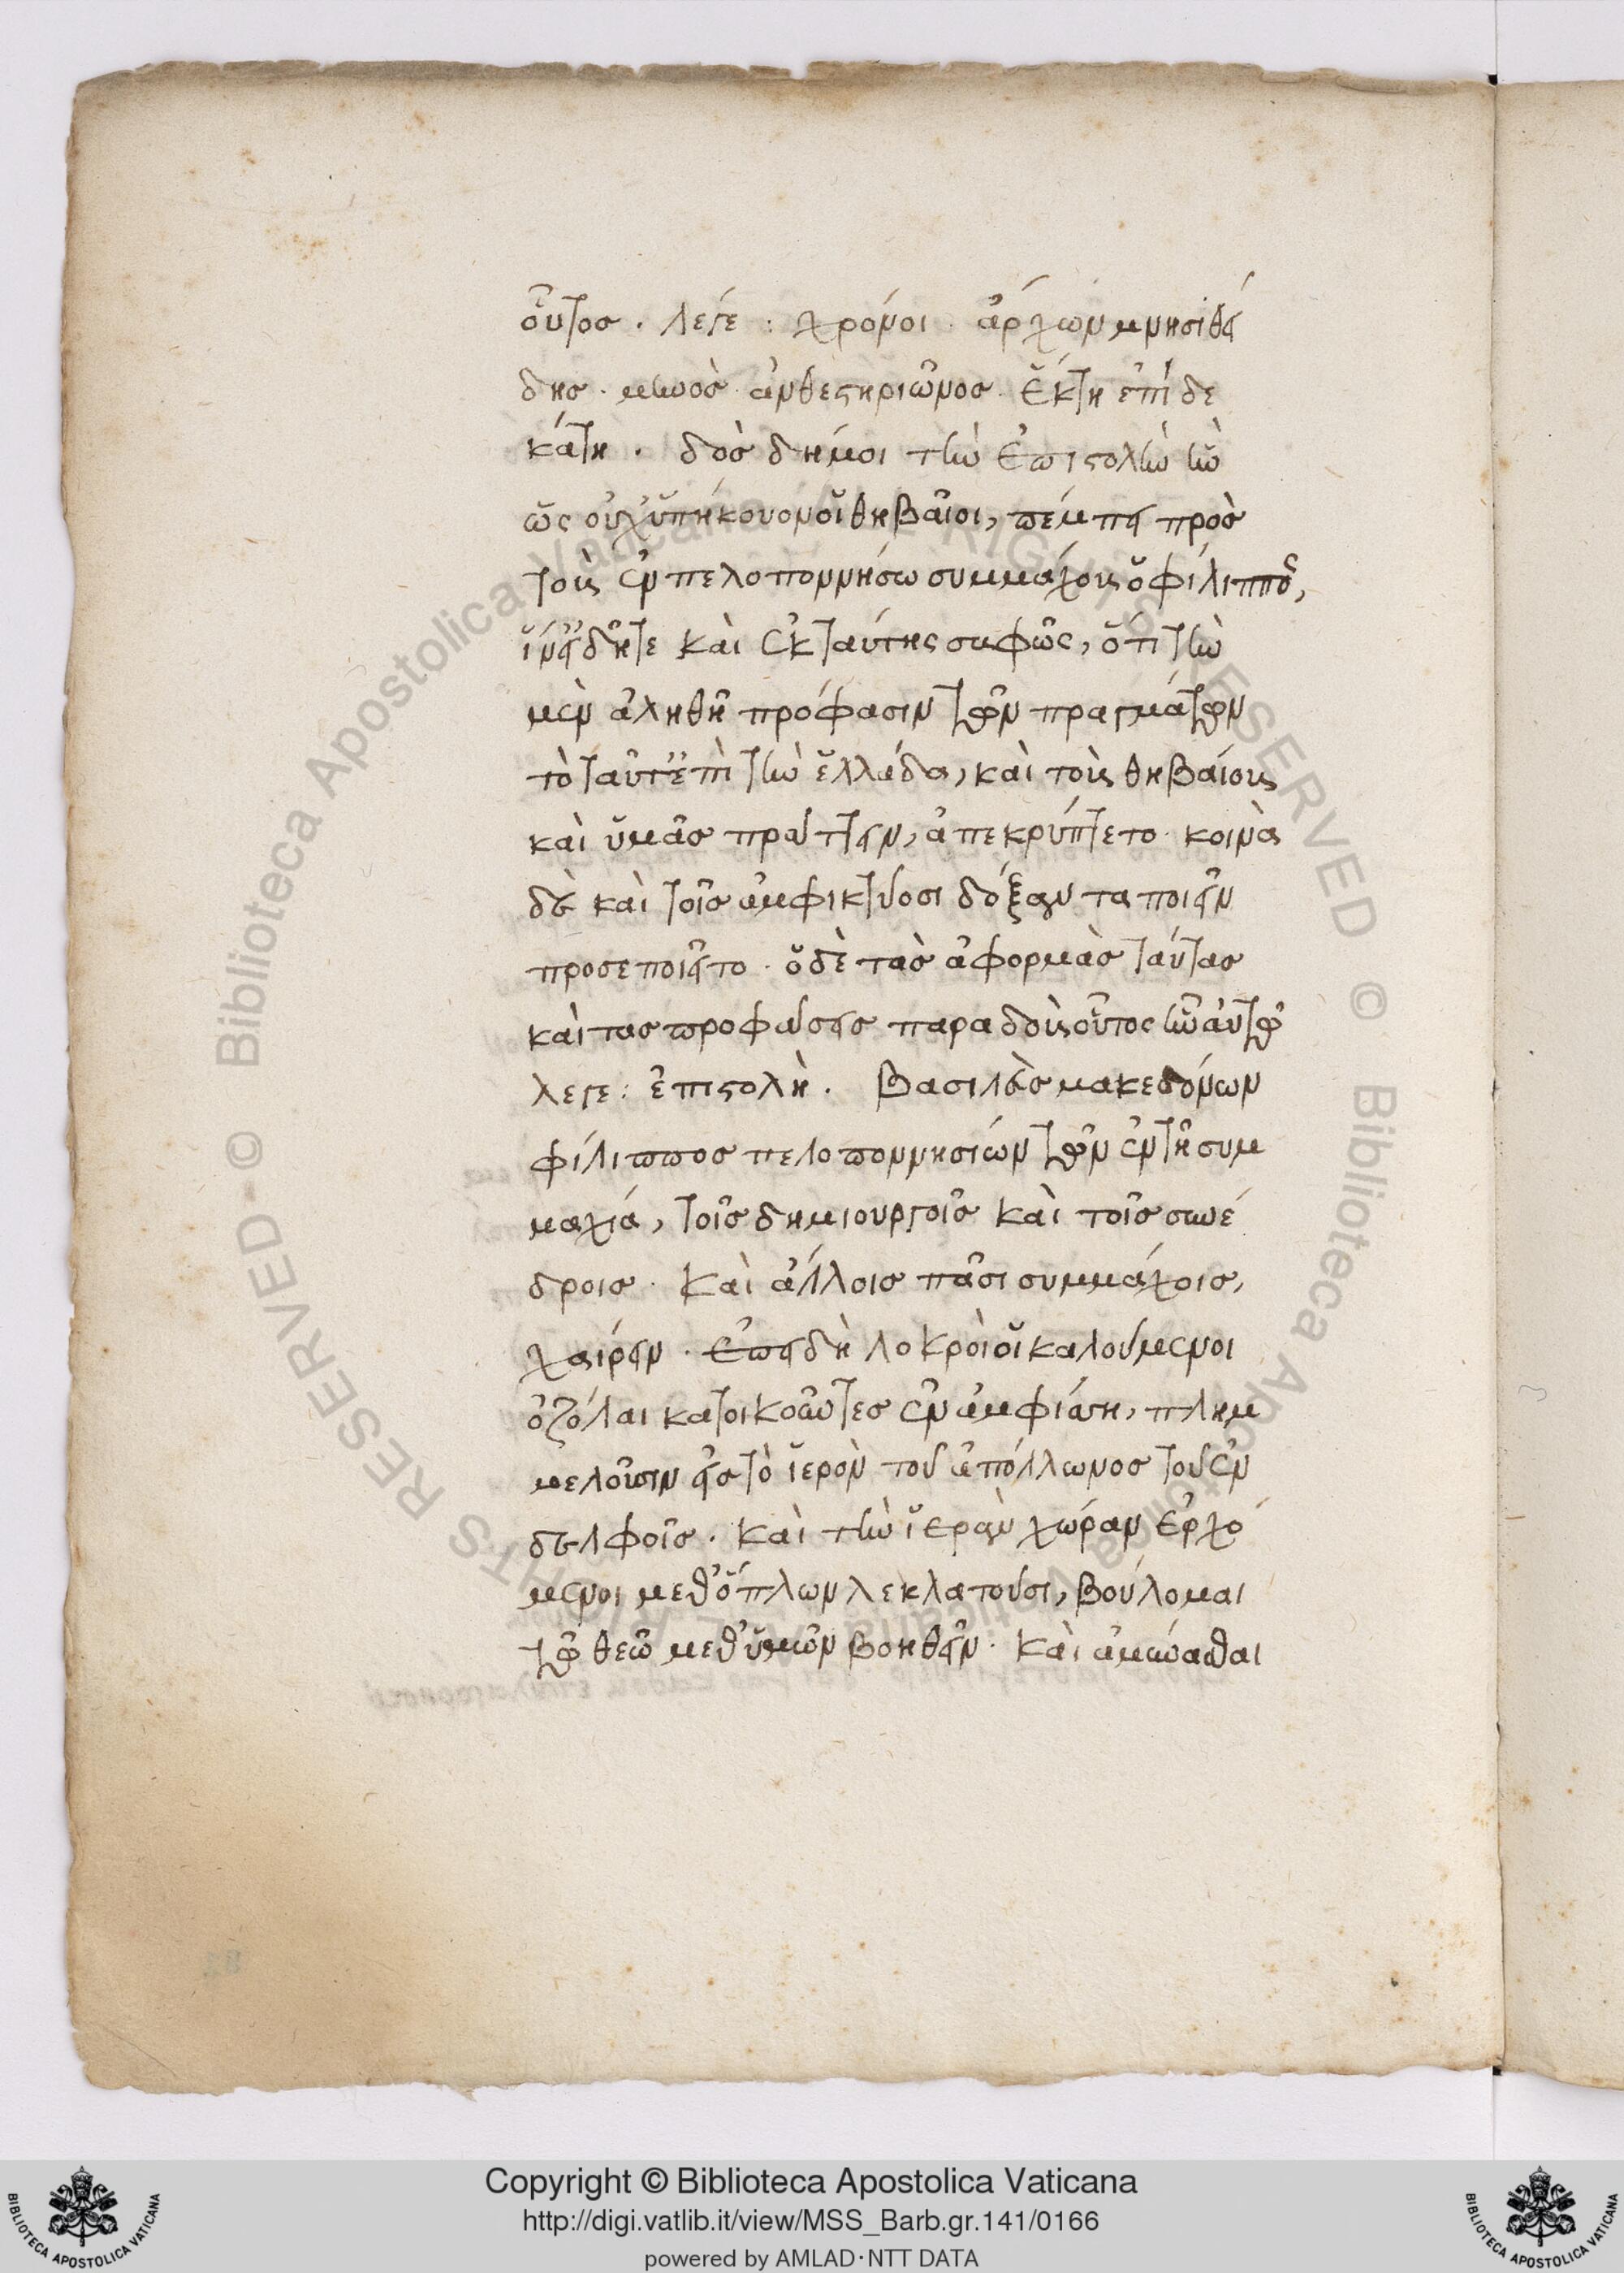 οὗτος. λέγε: χρόνοι. ἄρχων μνησιθεί
δης. μηνὸς ἀνθεστηριῶνος. ἕκτη ἐπὶ δε
κάτη. δὸς δή μοι τὴν ἐπιστολὴν ἣν
ὡς οὐχ ὑπήκουον οἱ θηβαῖοι, πέμπει πρὸς
τοὺς ἐν πελοποννήσω συμμάχους ὁ φίλιππος,
ἵν' εἰδῆτε καὶ ἐκ ταύτης σαφῶς, ὅτι τὴν
μὲν ἀληθῆ πρόφασιν τῶν πραγμάτων
τὸ ταῦτ' ἐπὶ τὴν ἑλλάδα, καὶ τοὺς θηβαίους
καὶ ὑμᾶς πράττειν, ἀπεκρύπτετο. κοινὰ
δὲ καὶ τοῖς ἀμφικτύοσι δόξαντα ποιεῖν
προσεποιεῖτο. ὁ δὲ τὰς ἀφορμὰς ταύτας
καὶ τὰς προφάσεις παραδοὺς οὗτος ἦν αὐτῶ
λέγε: ἐπιστολή. Βασιλεὺς μακεδόνων
φίλιππος πελοποννησίων τῶν ἐν τῆ συμ
μαχία, τοῖς δημιουργοῖς καὶ τοῖς συνέ
δροις. καὶ ἄλλοις πᾶσι συμμάχοις,
χαίρειν. ἐπειδὴ λοκροὶ οἱ καλούμενοι
ὀζόλαι κατοικοῦντες ἐν ἀμφίσση, πλημ
μελοῦσιν εἰς τὸ ἱερὸν τοῦ ἀπόλλωνος τοῦ ἐν
δελφοῖς. καὶ τὴν ἱερὰν χώραν ἐρχό
μενοι μεθ' ὅπλων λεηλατοῦσι, βούλομαι
τῶ θεῶ μεθ' ὑμῶν βοηθεῖν. καὶ ἀμύνασθαι
Copyright © Biblioteca Apostolica Vaticana
http://digi.vatlib.it/view/MSS_Barb.gr.141/0166
powered by AMLAD·NTT DATA
BIBLIOTECA APOSTOLICA VATICANA
BIBLIOTECA APOSTOLICA VATICANA